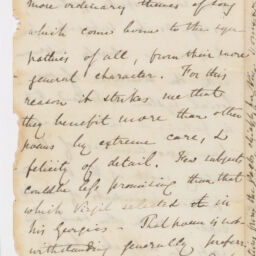 more ordinary themes of song
which come home to the sym-
pathies of all, from their more
general character. For this
reason it strikes me that
they benefit more than other
poems by extreme care, &
felicity of detail. Few subjects
could be less promising than that
which Virgil selected in
his Georgics. That poem is not-
withstanding generally profess-